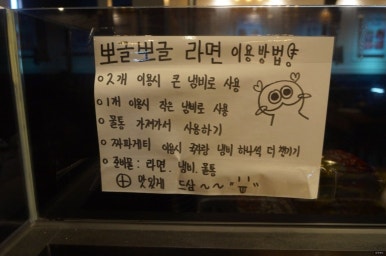 뽀글뽀글 라면 이용방법
○ 2개 이용시 큰 냄비로 사용
○ 1개 이용시 작은 냄비로 사용
○ 물통 가져가서 사용하기
○ 짜파게티 이용시 국자랑 냄비 하나씩 더 챙기기
○ 준비물 : 라면. 냄비. 물통
⊕ 맛있게 드삼 ~~